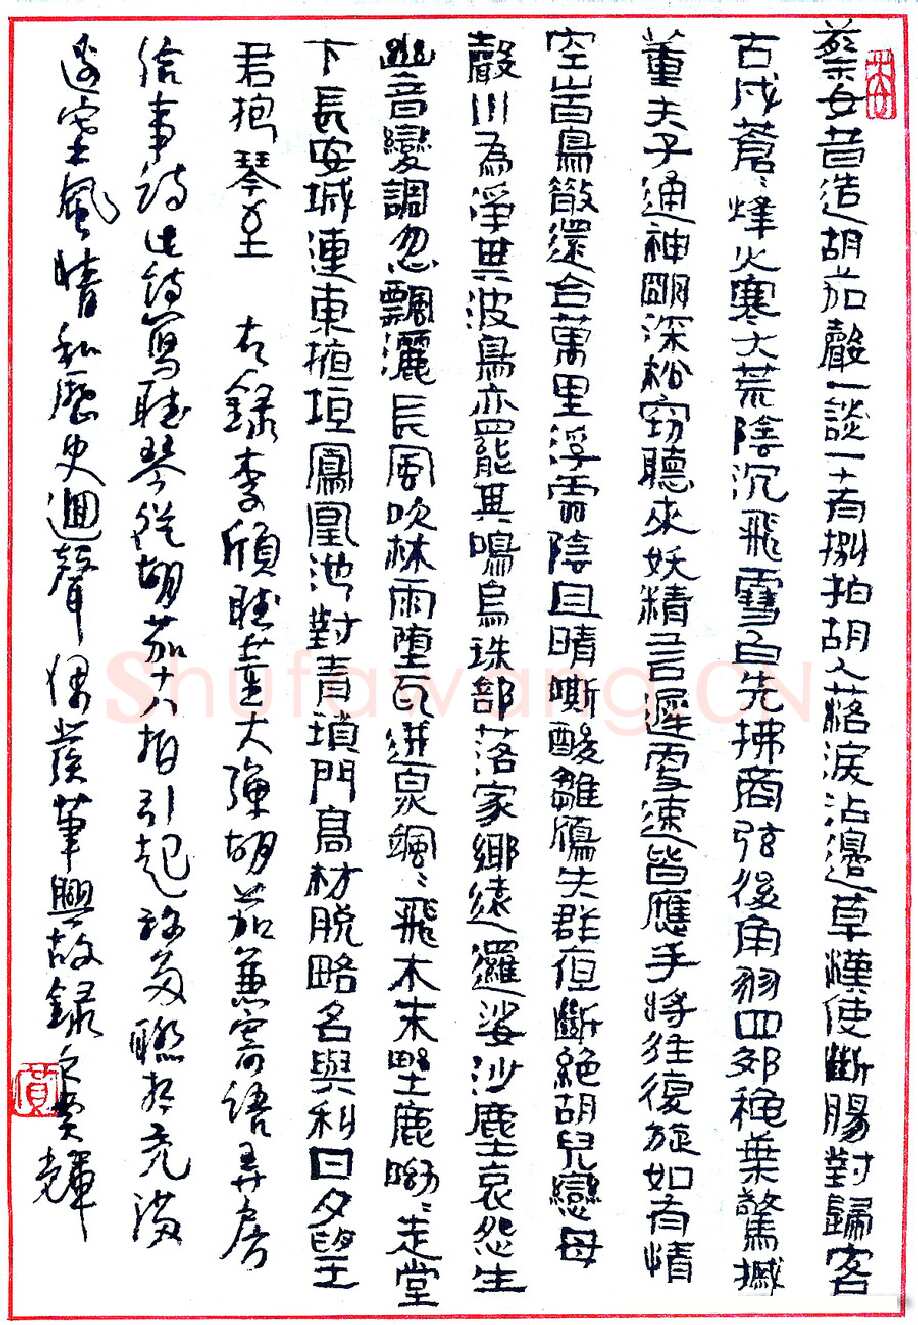 蔡女昔造胡茄聲一談一十有捌拍胡人落淚沾邊草漢使斷腸對歸客
古戍蒼〻烽火寒大荒陰沉飛雪白先拂商弦後角羽四郊穐葉驚摵
董夫子通神明深松窃聽來妖精言遲更速皆應手將往復旋如有情
空山百鳥散還合萬里浮雲陰且晴嘶酸雛鴈失群夜斷絕胡兒戀母
聲川為淨其波鳥亦罷其鳴烏珠部落家鄉遠邏娑沙塵哀怨生
幽音變調忽飄灑長風吹林雨墮瓦迸泉颯〻飛木末野鹿呦〻走堂
下長安城連東掖垣鳳凰池對青瑣門高材脫略名與利日夕望
君抱琴至 右錄李頎聽董大彈胡茄兼寄語弄房
給事詩此詩寫聽琴從胡茄十八拍引起 充滿
邊塞風情和歷史迴聲偶發筆興故錄之 輝
Shufawang.CN